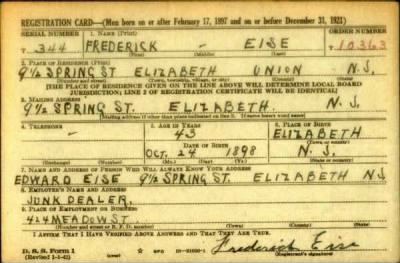 REGISTRATION CARD—(Men born on or after February 17, 1897 and on or before December 31, 1921)
SERIAL NUMBER 1. NAME (Print) ORDER NUMBER
T 344 FREDERICK - EISE T 10363
(First) (Middle) (Last)
2. PLACE OF RESIDENCE (Print)
9½ SPRING ST ELIZABETH UNION N.J.
(Number and street) (Town, township, village, or city) (County) (State)
[THE PLACE OF RESIDENCE GIVEN ON THE LINE ABOVE WILL DETERMINE LOCAL BOARD
JURISDICTION; LINE 2 OF REGISTRATION CERTIFICATE WILL BE IDENTICAL]
3. MAILING ADDRESS
9½ SPRING ST. ELIZABETH. N.J.
[Mailing address if other than place indicated on line 2. If same insert word same]
4. TELEPHONE 5. AGE IN YEARS 6. PLACE OF BIRTH
- 43 ELIZABETH
DATE OF BIRTH (Town or county)
OCT. 24 1898 N.J.
(Exchange) (Number) (Mo.) (Day) (Yr.) (State or country)
7. NAME AND ADDRESS OF PERSON WHO WILL ALWAYS KNOW YOUR ADDRESS
EDWARD EISE 9½ SPRING ST. ELIZABETH N.J.
8. EMPLOYER'S NAME AND ADDRESS
JUNK DEALER.
9. PLACE OF EMPLOYMENT OR BUSINESS
424 MEADOW ST.
(Number and street or R. F. D. number) (Town) (County) (State)
I AFFIRM THAT I HAVE VERIFIED ABOVE ANSWERS AND THAT THEY ARE TRUE.
D. S. S. Form 1
(Revised 1-1-42) GPO Frederick Eise
(Registrant's signature)